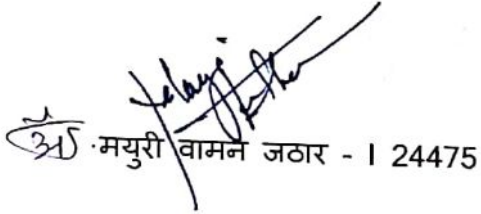 ॲड .मयुरी वामन जठार - I 24475